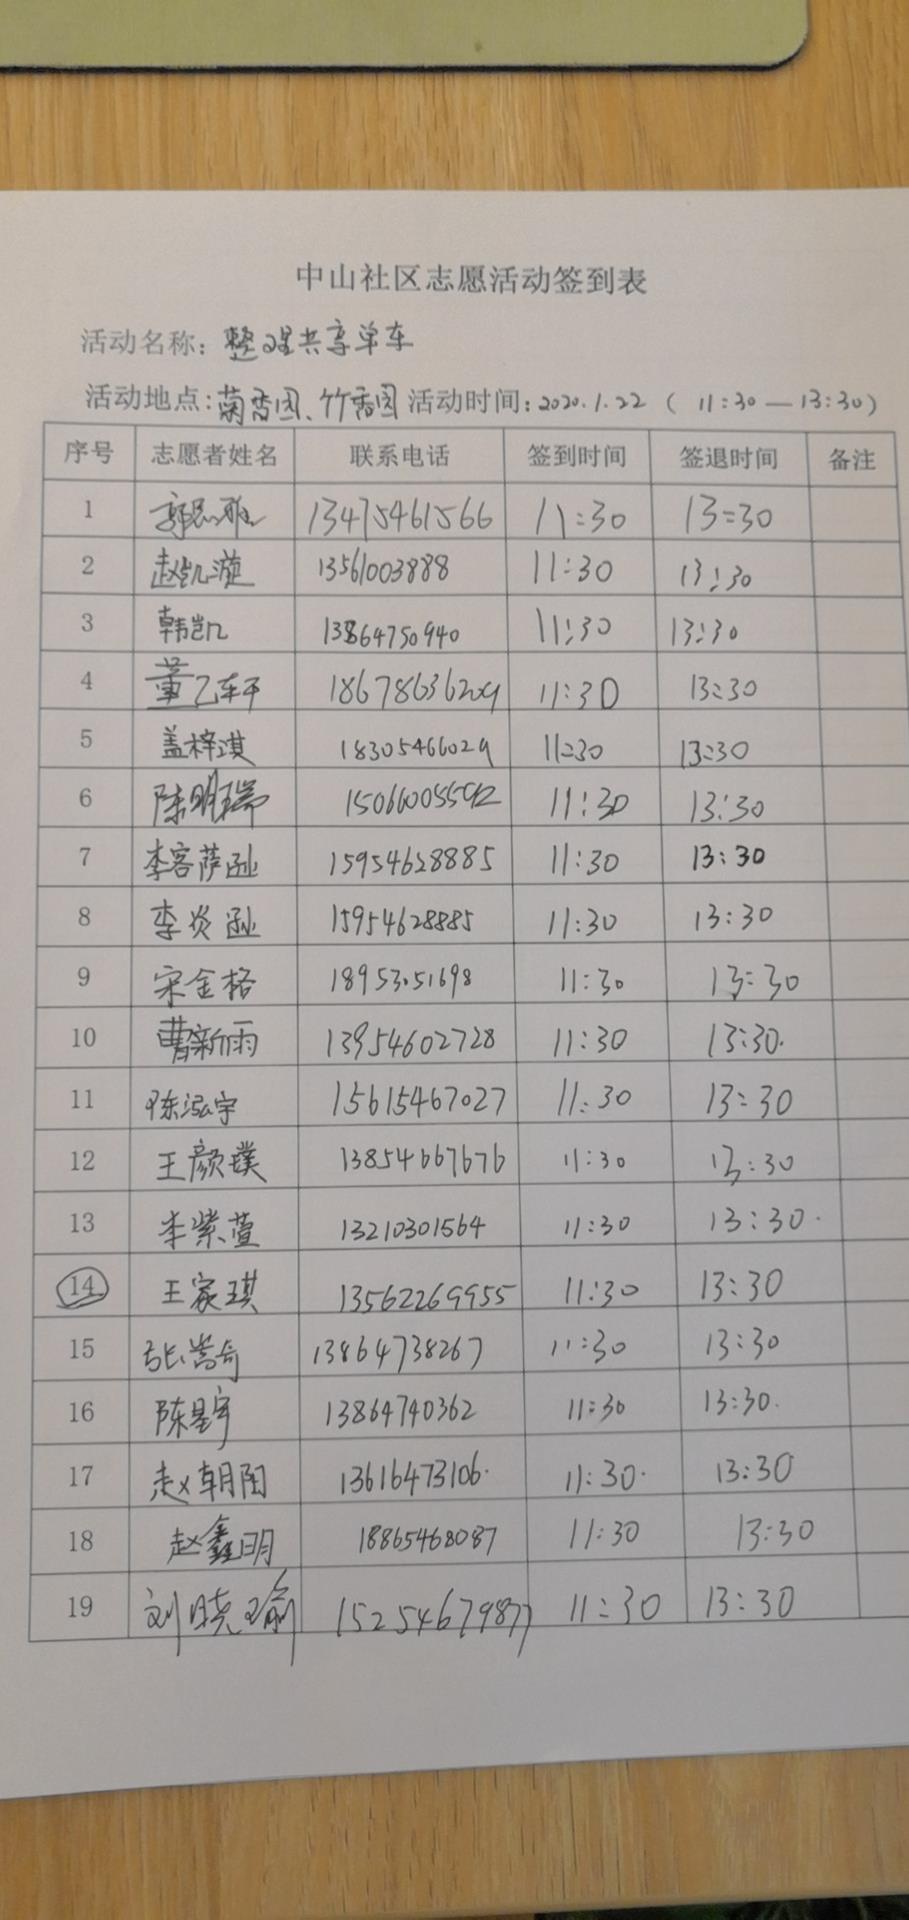 中山社区志愿活动签到表
活动名称：整理共享单车
活动地点：菊香园、竹香园 活动时间：2020.1.22（11:30—13:30）
序号 志愿者姓名 联系电话 签到时间 签退时间 备注
1 郭思雅 13475461566 11:30 13:30
2 赵凯漩 13561003888 11:30 13:30
3 韩凯 13864750940 11:30 13:30
4 董乙轩 18678636209 11:30 13:30
5 盖梓淇 18305466029 11:30 13:30
6 陈明瑞 15066005592 11:30 13:30
7 李客萨逊 15954628885 11:30 13:30
8 李炎逊 15954628885 11:30 13:30
9 宋金格 18953051698 11:30 13:30
10 曹新雨 13954602728 11:30 13:30.
11 陈泓宇 15615467027 11:30 13:30
12 王颜璞 13854667676 11:30 13:30
13 李紫萱 13210301564 11:30 13:30.
14 王家琪 13562269955 11:30 13:30
15 张嵩奇 13864738267 11:30 13:30
16 陈星宇 13864740362 11:30 13:30.
17 赵朝阳 13616473106. 11:30. 13:30
18 赵鑫明 18865468087 11:30 13:30
19 刘晓瑜 15254679877 11:30 13:30